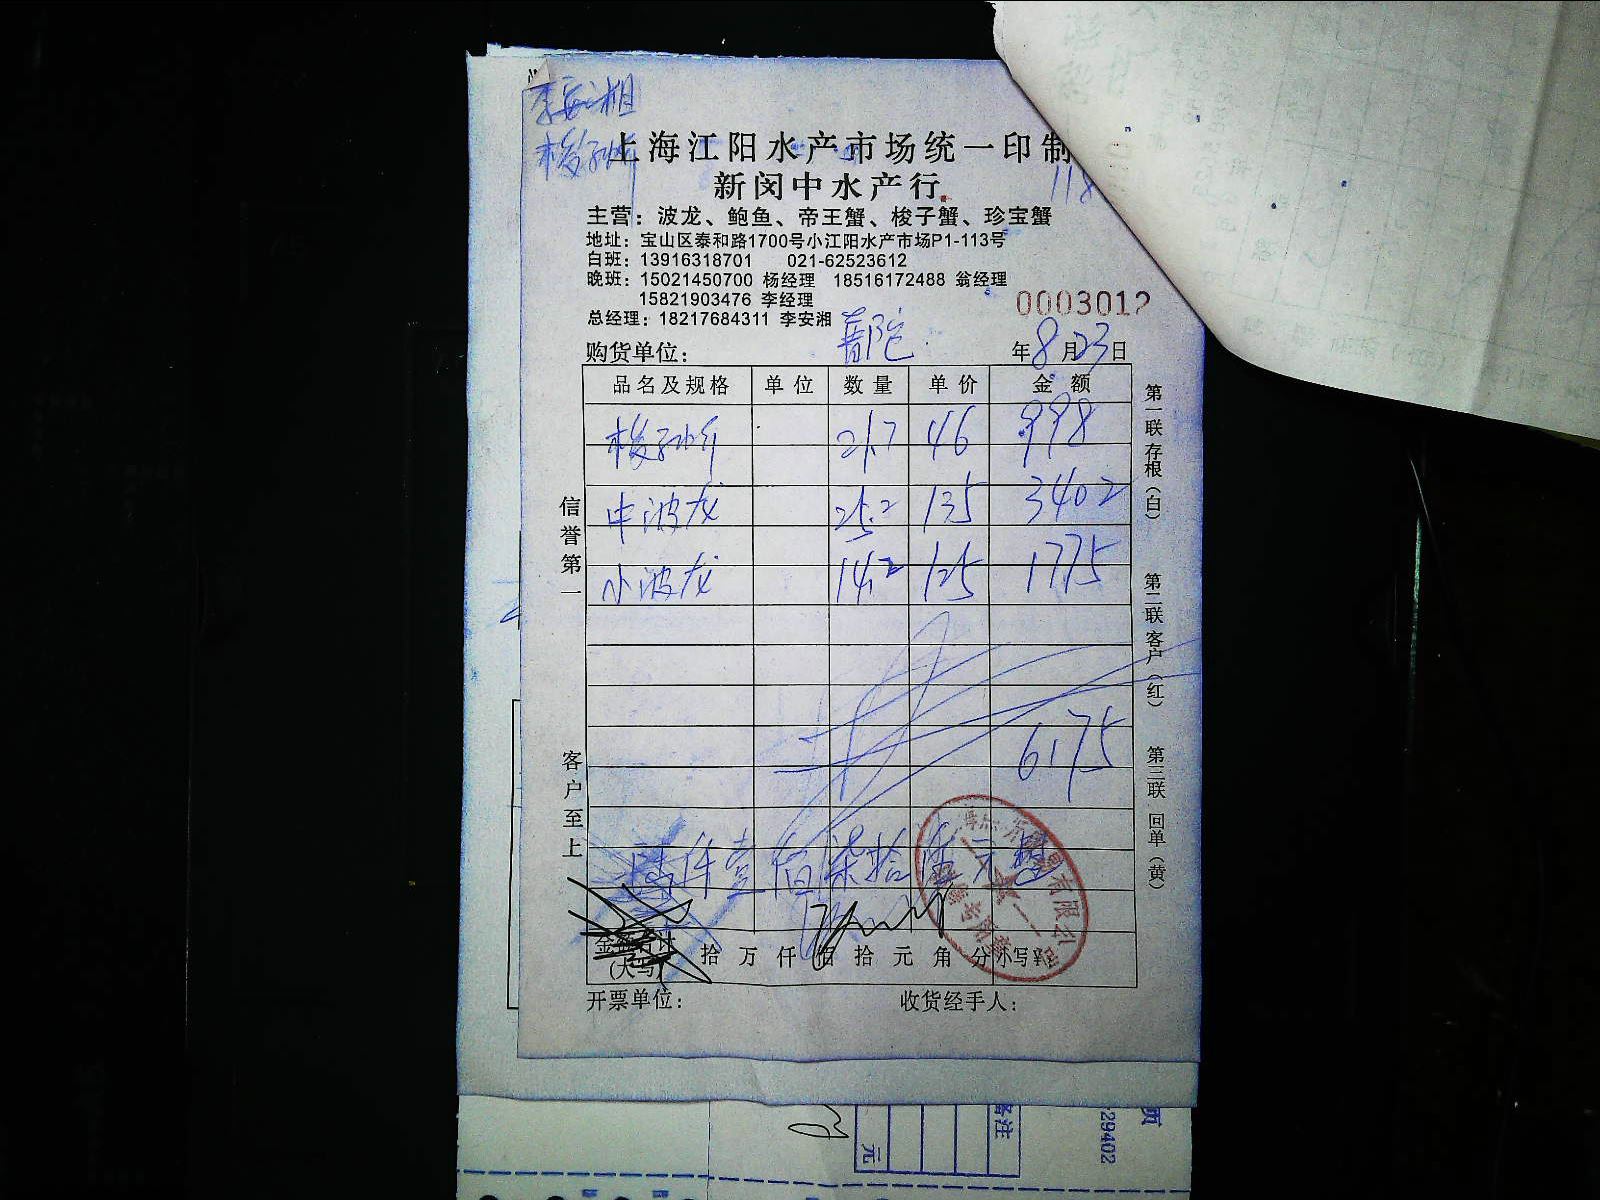 李安湘
梭子蟹
上海江阳水产市场统一印制
118
新闵中水产行
主营：波龙、鲍鱼、帝王蟹、梭子蟹、珍宝蟹
地址：宝山区泰和路1700号小江阳水产市场P1-113号
白班：13916318701 021-62523612
晚班：15021450700 杨经理 18516172488 翁经理
15821903476 李经理
0003012
总经理：18217684311 李安湘
购货单位： 普陀 年8月23日
品名及规格 单位 数量 单价 金额
梭子介 21.7 46 998
中波龙 25.2 135 3402
小波龙 14.2 125 1775
6175
陆仟壹佰柒拾伍元整
金额合计(大写) 拾 万 仟 佰 拾 元 角 分 小写¥
开票单位： 收货经手人：
信誉第一
客户至上
第一联 存根(白)
第二联 客户(红)
第三联 回单(黄)
有限公司
备注
元
页
29402